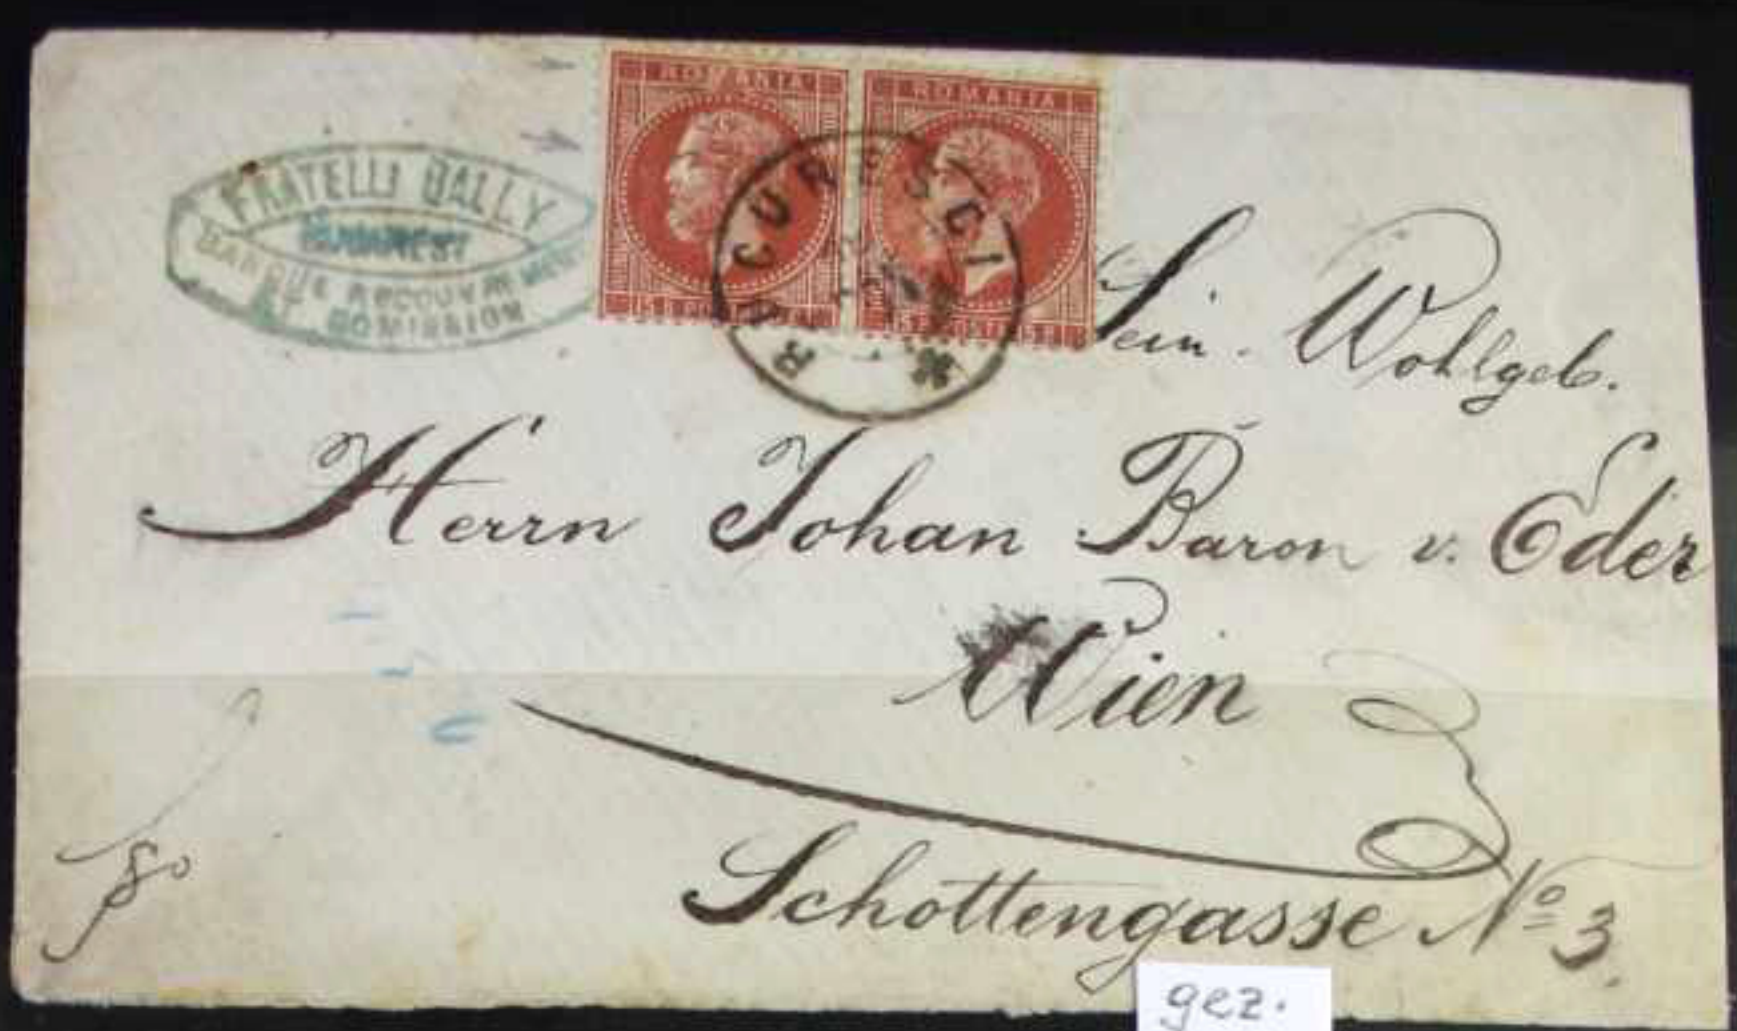 FRATELLI BALLY
BUKAREST
BANQUE RECOUVREMENT
ET COMISSION
ROMANIA
ROMANIA
15
BUCURESCI
R
Sein. Wohlgeb.
Herrn Johan Baron v. Eder
Wien
Schottengasse No 3.
gez.